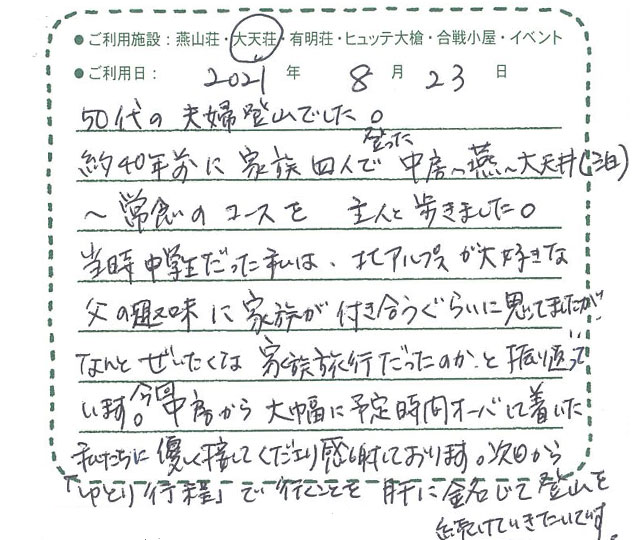 ● ご利用施設：燕山荘・大天荘・有明荘・ヒュッテ大槍・合戦小屋・イベント
● ご利用日： 2021 年 8 月 23 日
50代の夫婦登山でした。
約40年前に家族四人で登った中房〜燕〜大天井(二泊)
〜常念のコースを 主人と歩きました。
当時中学生だった私は、北アルプスが大好きな
父の趣味に家族が付き合うぐらいに思ってましたが
なんとぜいたくな家族旅行だったのか、と振り返って
います。今回中房から大幅に予定時間オーバーして着いた
私たちに優しく接してくださり感謝しております。次回から
「ゆとり行程」で行くことを肝に銘じて登山を
続けていきたいです。